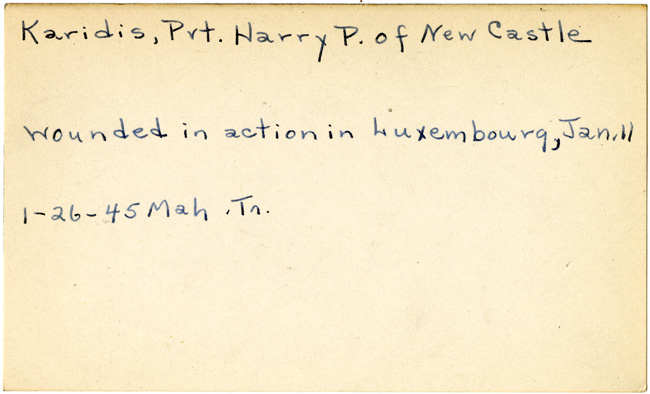 Karidis, Pvt. Harry P. of New Castle
wounded in action in Luxembourg, Jan. 11
1-26-45 Mah. Tr.